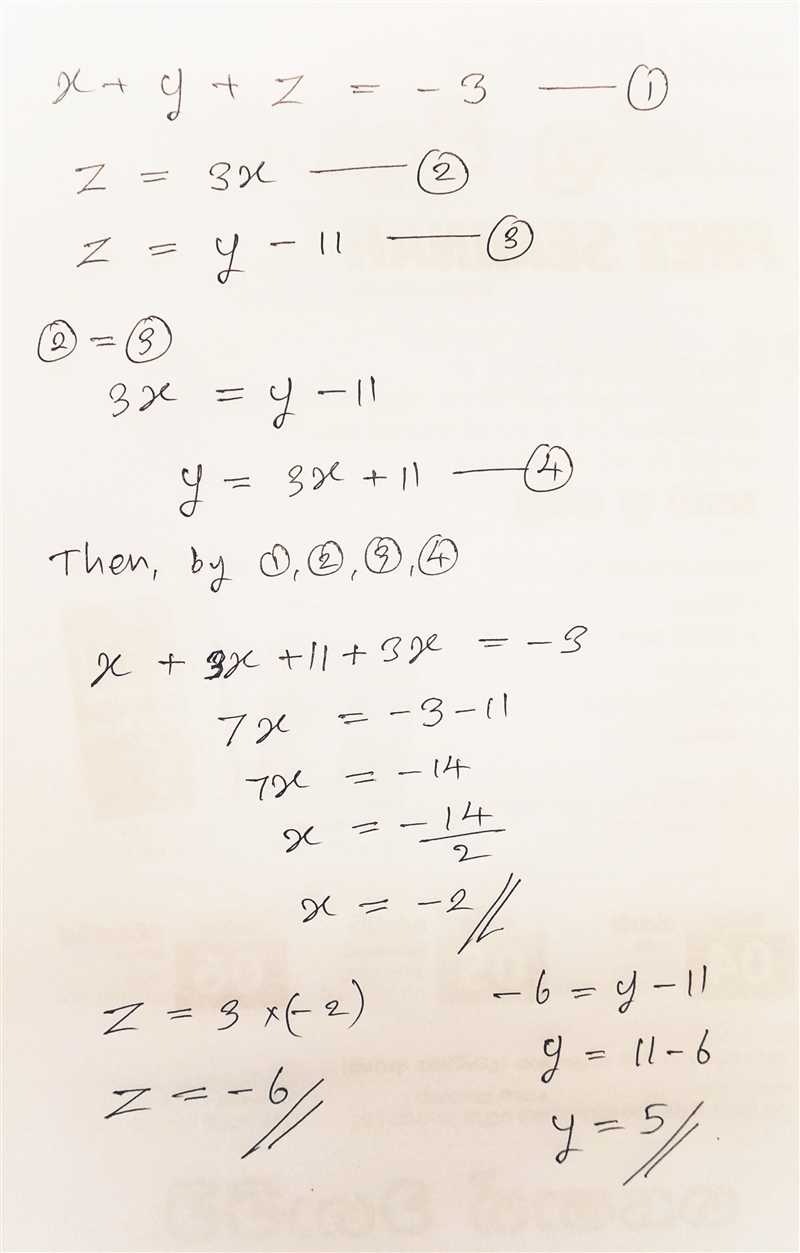 x + y + z = -3 —— ①
z = 3x —— ②
z = y - 11 —— ③
② = ③
3x = y - 11
y = 3x + 11 —— ④
Then, by ①, ②, ③, ④
x + 3x + 11 + 3x = -3
7x = -3 - 11
7x = -14
x = -14/2
x = -2 //
z = 3 × (-2)
z = -6 //
-6 = y - 11
y = 11 - 6
y = 5 //